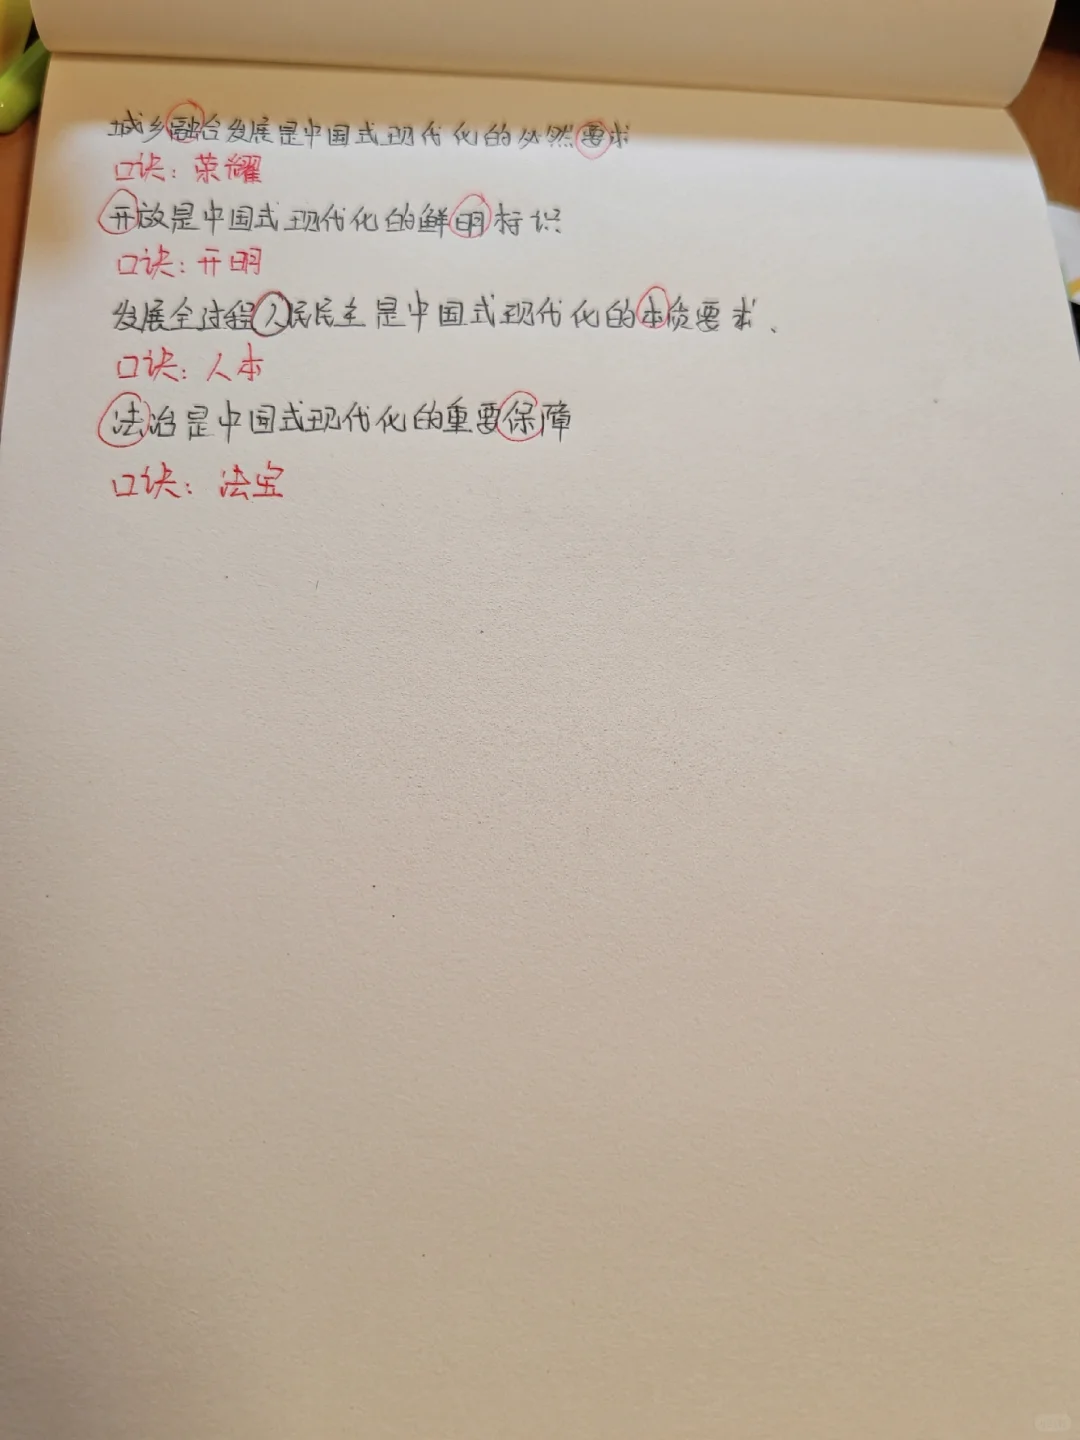 城乡融合发展是中国式现代化的必然要求
口诀：荣耀
开放是中国式现代化的鲜明标识
口诀：开明
发展全过程人民民主是中国式现代化的本质要求、
口诀：人本
法治是中国式现代化的重要保障
口诀：法宝